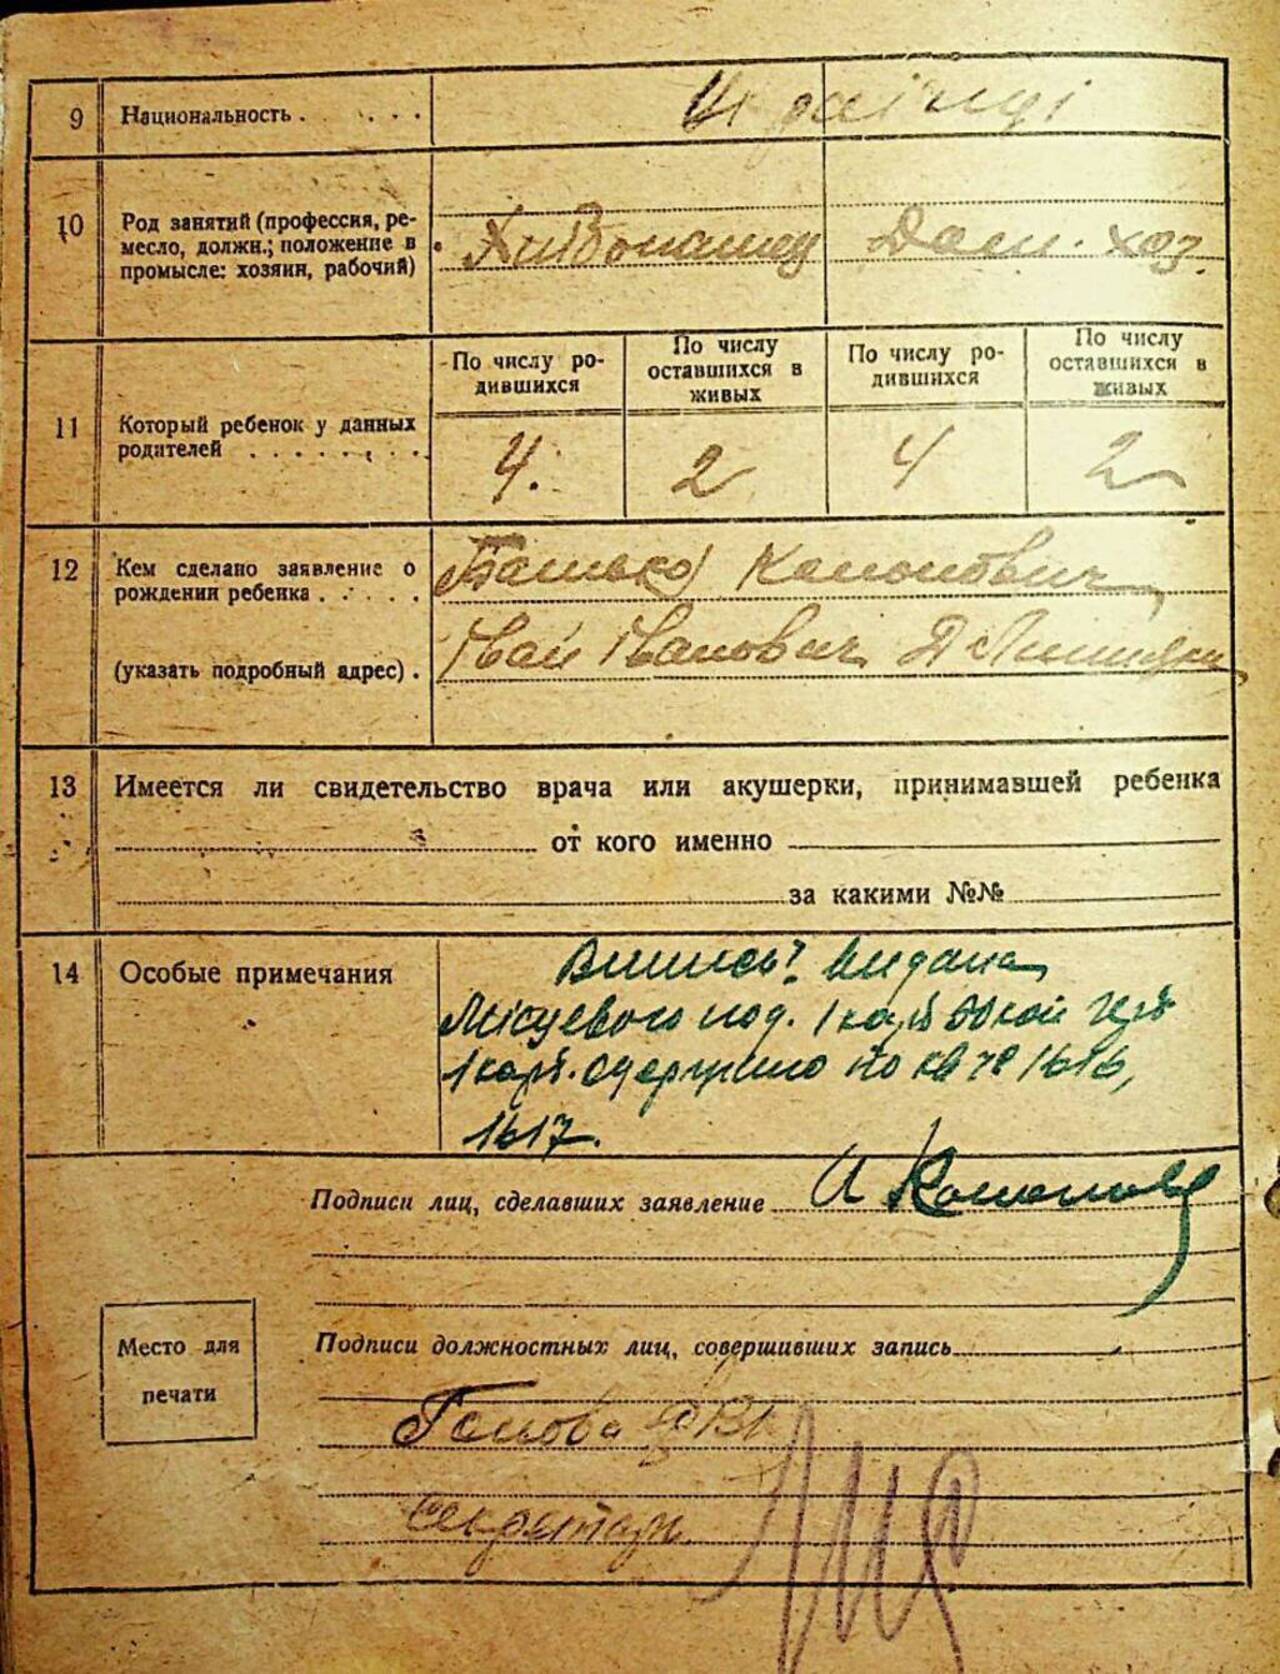 9 Национальность . . . . . Українці
10 Род занятий (профессия, ре-
месло, должн.; положение в
промысле: хозяин, рабочий)
Дом. хоз.
По числу ро-
дившихся
По числу
оставшихся в
живых
По числу ро-
дившихся
По числу
оставшихся в
живых
11 Который ребенок у данных
родителей . . . . . . . .
4. 2 4 2
12 Кем сделано заявление о
рождении ребенка . . . . .
Батько
(указать подробный адрес) .
Іван Іванович
13 Имеется ли свидетельство врача или акушерки, принимавшей ребенка
от кого именно
за какими №№
14 Особые примечания
видана
Місцевого под. 1 карб.
1 карб. одержано по кв № 1616,
1617.
Подписи лиц, сделавших заявление
Место для
печати
Подписи должностных лиц, совершивших запись
Голова
Секретарь